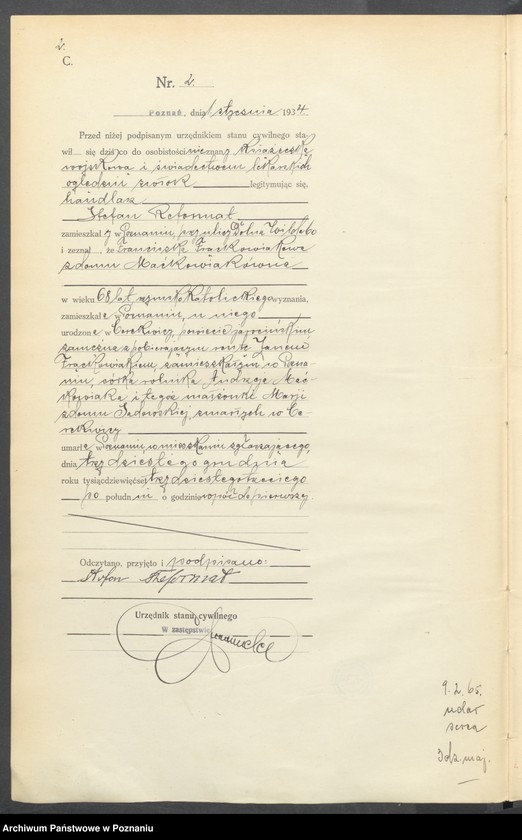 2.
C.
Nr. 2
Poznań, dnia 1 stycznia 1934
Przed niżej podpisanym urzędnikiem stanu cywilnego sta-
wił się dziś, co do osobistości nieznany książeczką
wojskową i świadectwem lekarskich
oględzin zwłok legitymując się,
handlarz
Stefan Reformat
zamieszkały w Poznaniu, przy ulicy Dolna Wilda
i zeznał, że Franciszka Frąckowiakowa
z domu Maćkowiakówna
w wieku 68 lat, rzymsko katolickiego wyznania,
zamieszkała w Poznaniu, u niego
urodzona w Cerekwicy, powiecie jarocińskim
zamężna z pobierającym rentę Janem
Frąckowiakiem, zamieszkałym w Pozna-
niu, córka rolnika Andrzeja Mać-
kowiaka i tegoż małżonki Marji
z domu Sadowskiej zmarłych w Ce-
rekwicy
umarła w Poznaniu w mieszkaniu zgłaszającego,
dnia trzydziestego grudnia
roku tysiąc dziewięćset trzydziestego trzeciego
po południu o godzinie wpół do pierwszej.
Odczytano, przyjęto i podpisano:
Stefan Reformat
Urzędnik stanu cywilnego
W zastępstwie
9. 2. 65.
udar
serca
3 dz. maj.
Archiwum Państwowe w Poznaniu